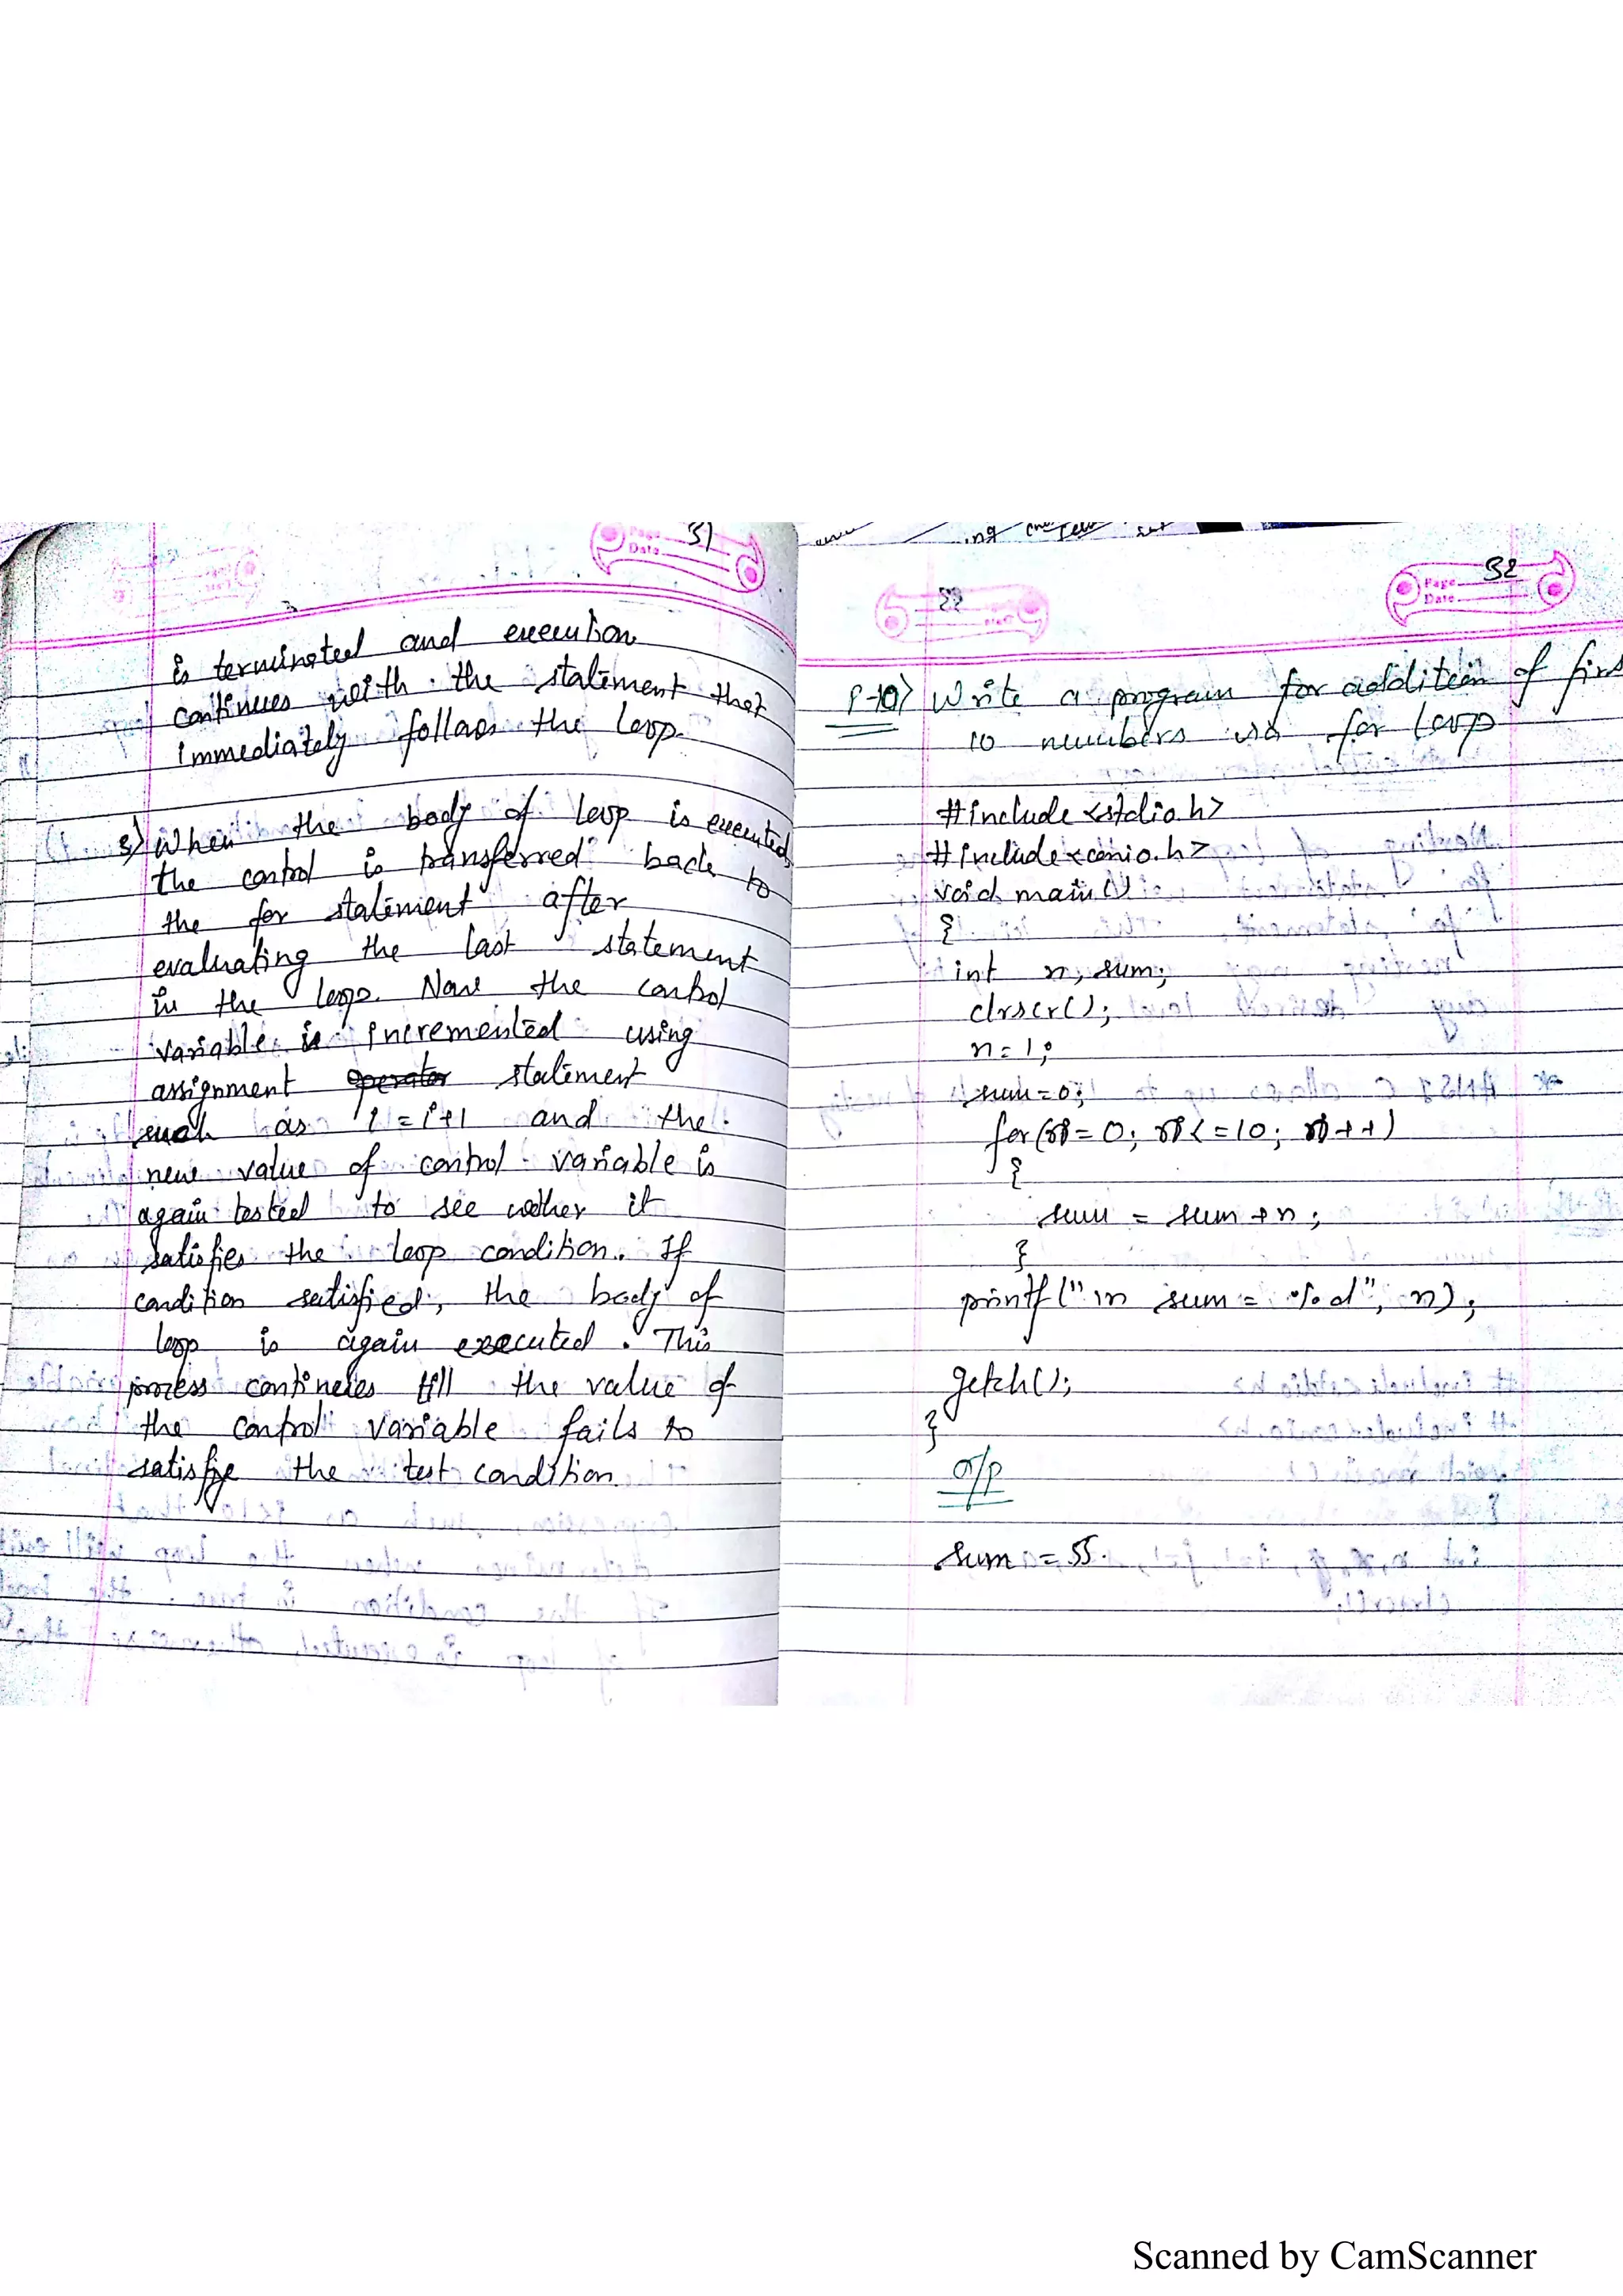 Page 31
Date
is terminated and execution
continues with the statement that
immediately follows the loop.
3) When the body of loop is executed,
the control is transferred back to
the for statement after
evaluating the last statement
in the loop. Now the control
variable is incremented using
assignment operator statement
such as i = i+1 and the
new value of control variable is
again tested to see wether it
satisfies the loop condition. If
condition satisfied, the body of
loop is again executed. This
process continues till the value of
the control variable fails to
satisfye the test condition.
Page 32
Date
P-10) Write a program for addition of firs
10 numbers via for loop
#include <stdio.h>
#include <conio.h>
void main()
{
int n, sum;
clrscr();
n=1;
sum=0;
for( = 0; <=10; ++)
{
sum = sum+n;
}
printf("\n sum = %d", n);
getch();
}
O/P
sum = 55.
Scanned by CamScanner